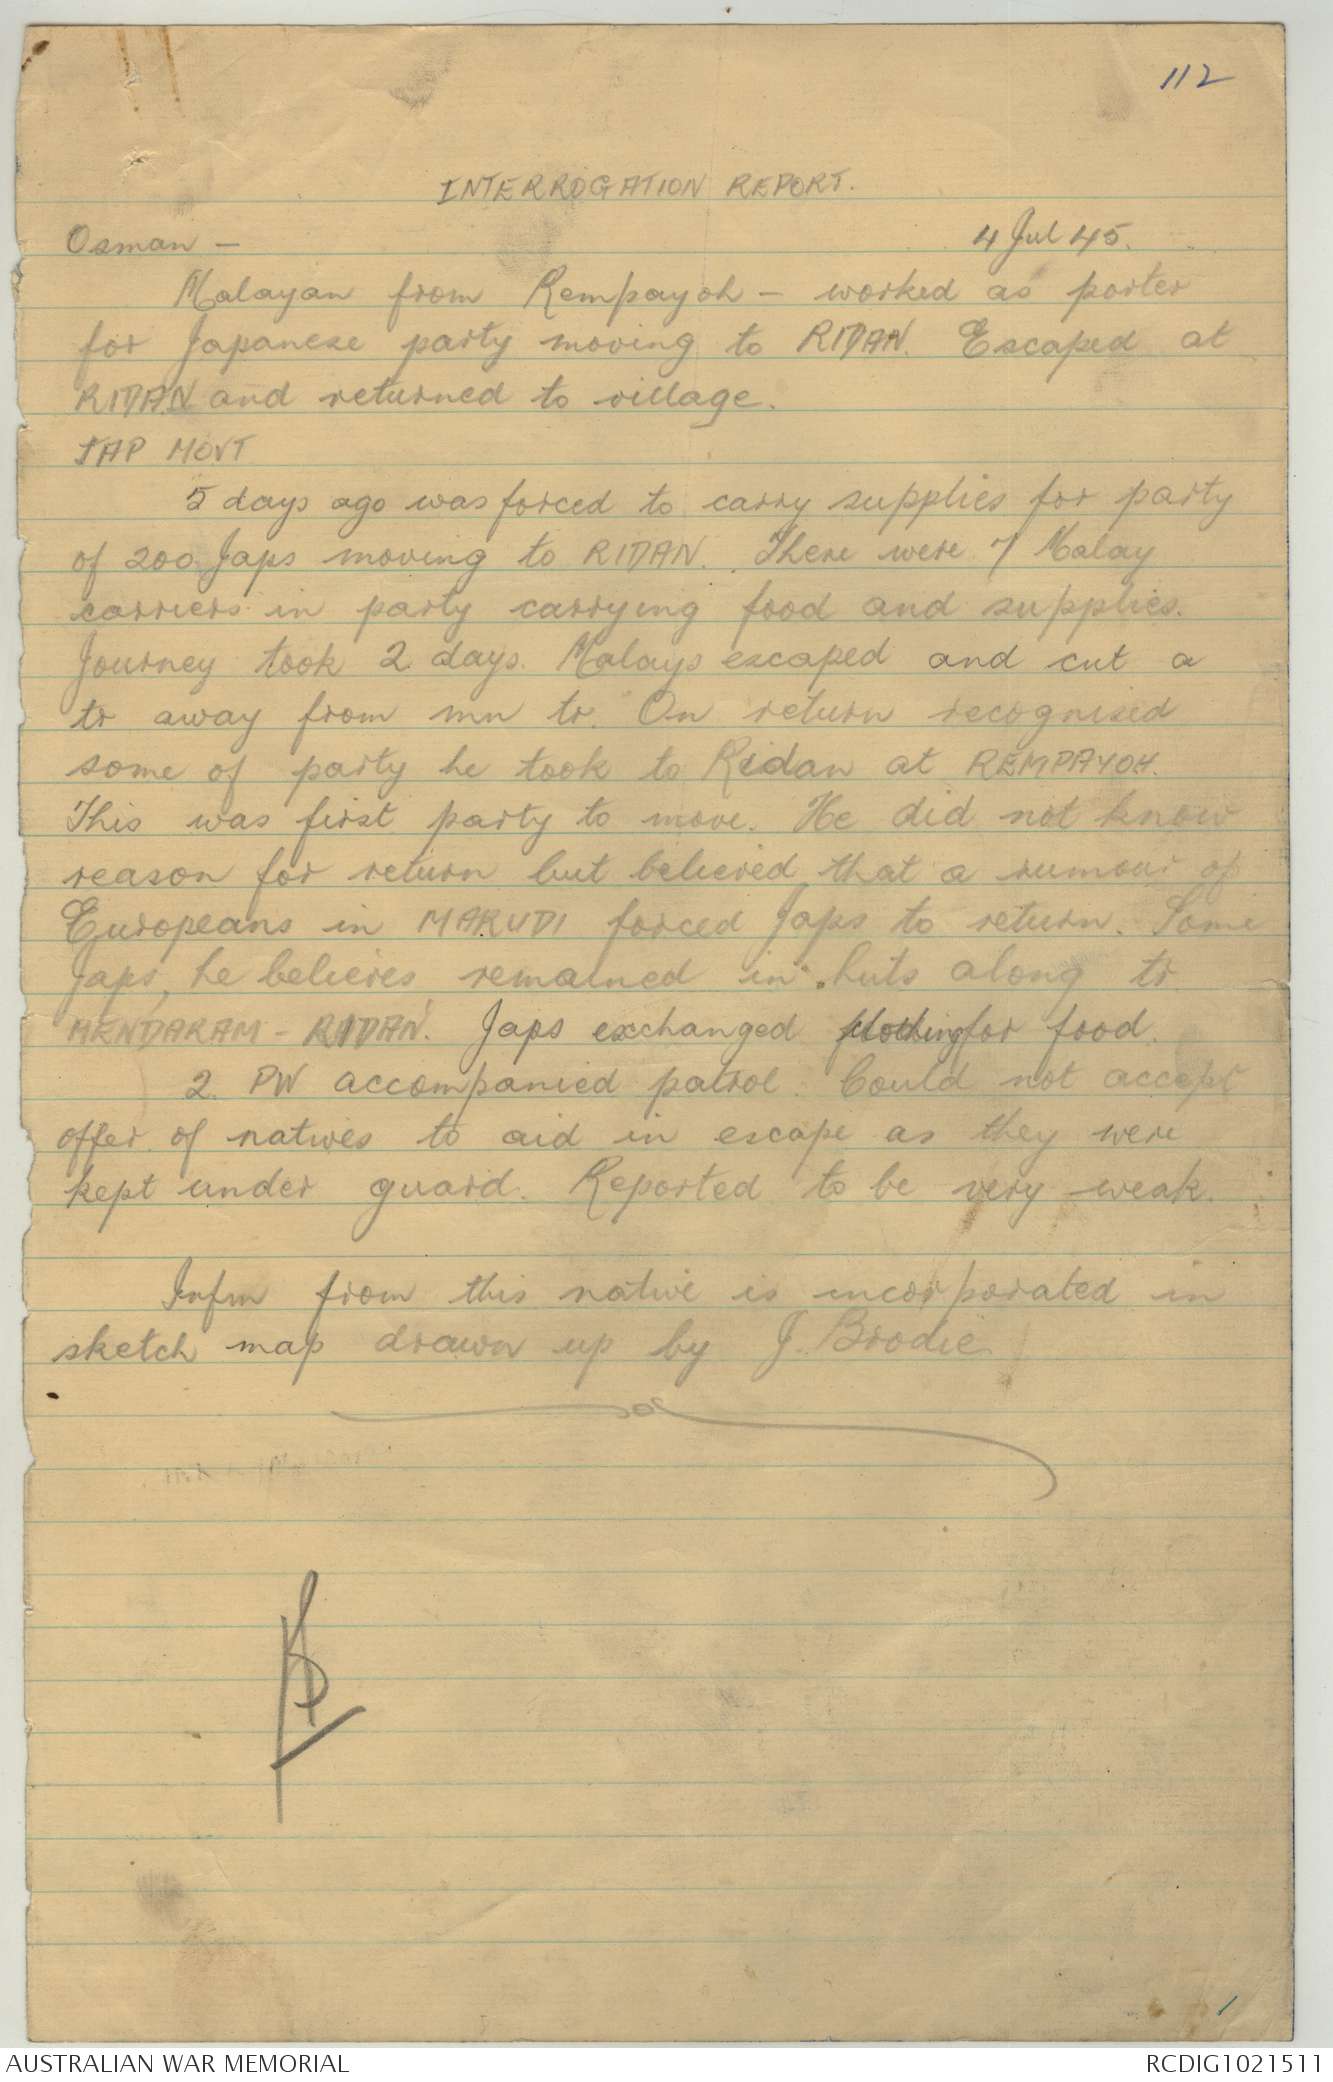 112
INTERROGATION REPORT.
Osman - 4 Jul 45.
Malayan from Rempayoh - worked as porter
for Japanese party moving to RIDAN. Escaped at
RIDAN and returned to village.
JAP MOVT
5 days ago was forced to carry supplies for party
of 200 Japs moving to RIDAN. There were 7 Malay
carriers in party carrying food and supplies.
Journey took 2 days. Malays escaped and cut a
tr away from mn tr. On return recognised
some of party he took to Ridan at REMPAYOH.
This was first party to move. He did not know
reason for return but believed that a rumour of
Europeans in MARUDI forced Japs to return. Some
Japs, he believes remained in huts along tr
MENDARAM - RIDAN. Japs exchanged clothing for food.
2 PW accompanied patrol. Could not accept
offer of natives to aid in escape as they were
kept under guard. Reported to be very weak.
Infm from this native is incorporated in
sketch map drawn up by J. Brodie
1
AUSTRALIAN WAR MEMORIAL RCDIG1021511